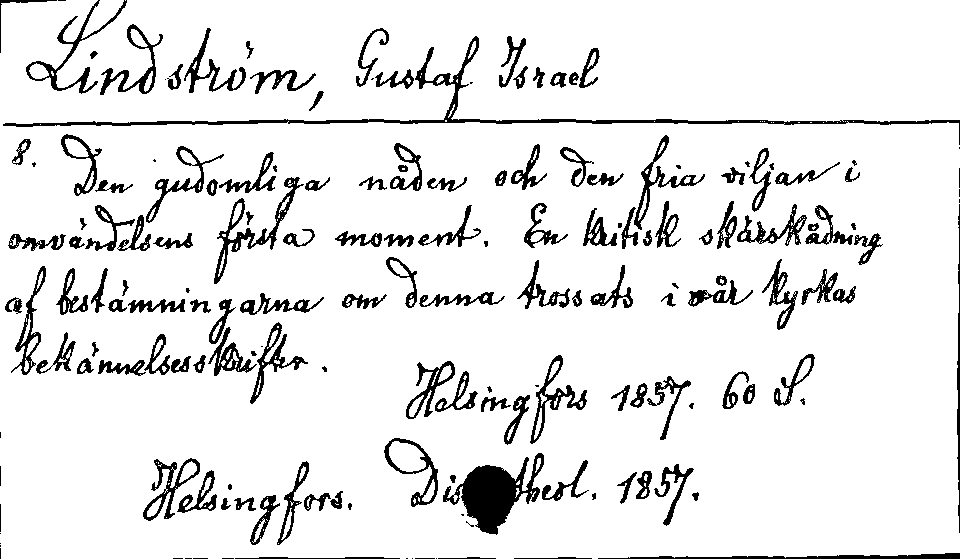 Lindström, Gustaf Israel
8. Den gudomliga nåden och den fria viljan i
omvändelsens första moment. En kritisk skärskådning
af bestämningarna om denna trossats i vår kyrkas
bekännelsesskrifter.
Helsingfors 1857. 60 S.
Helsingfors. Dis theol. 1857.